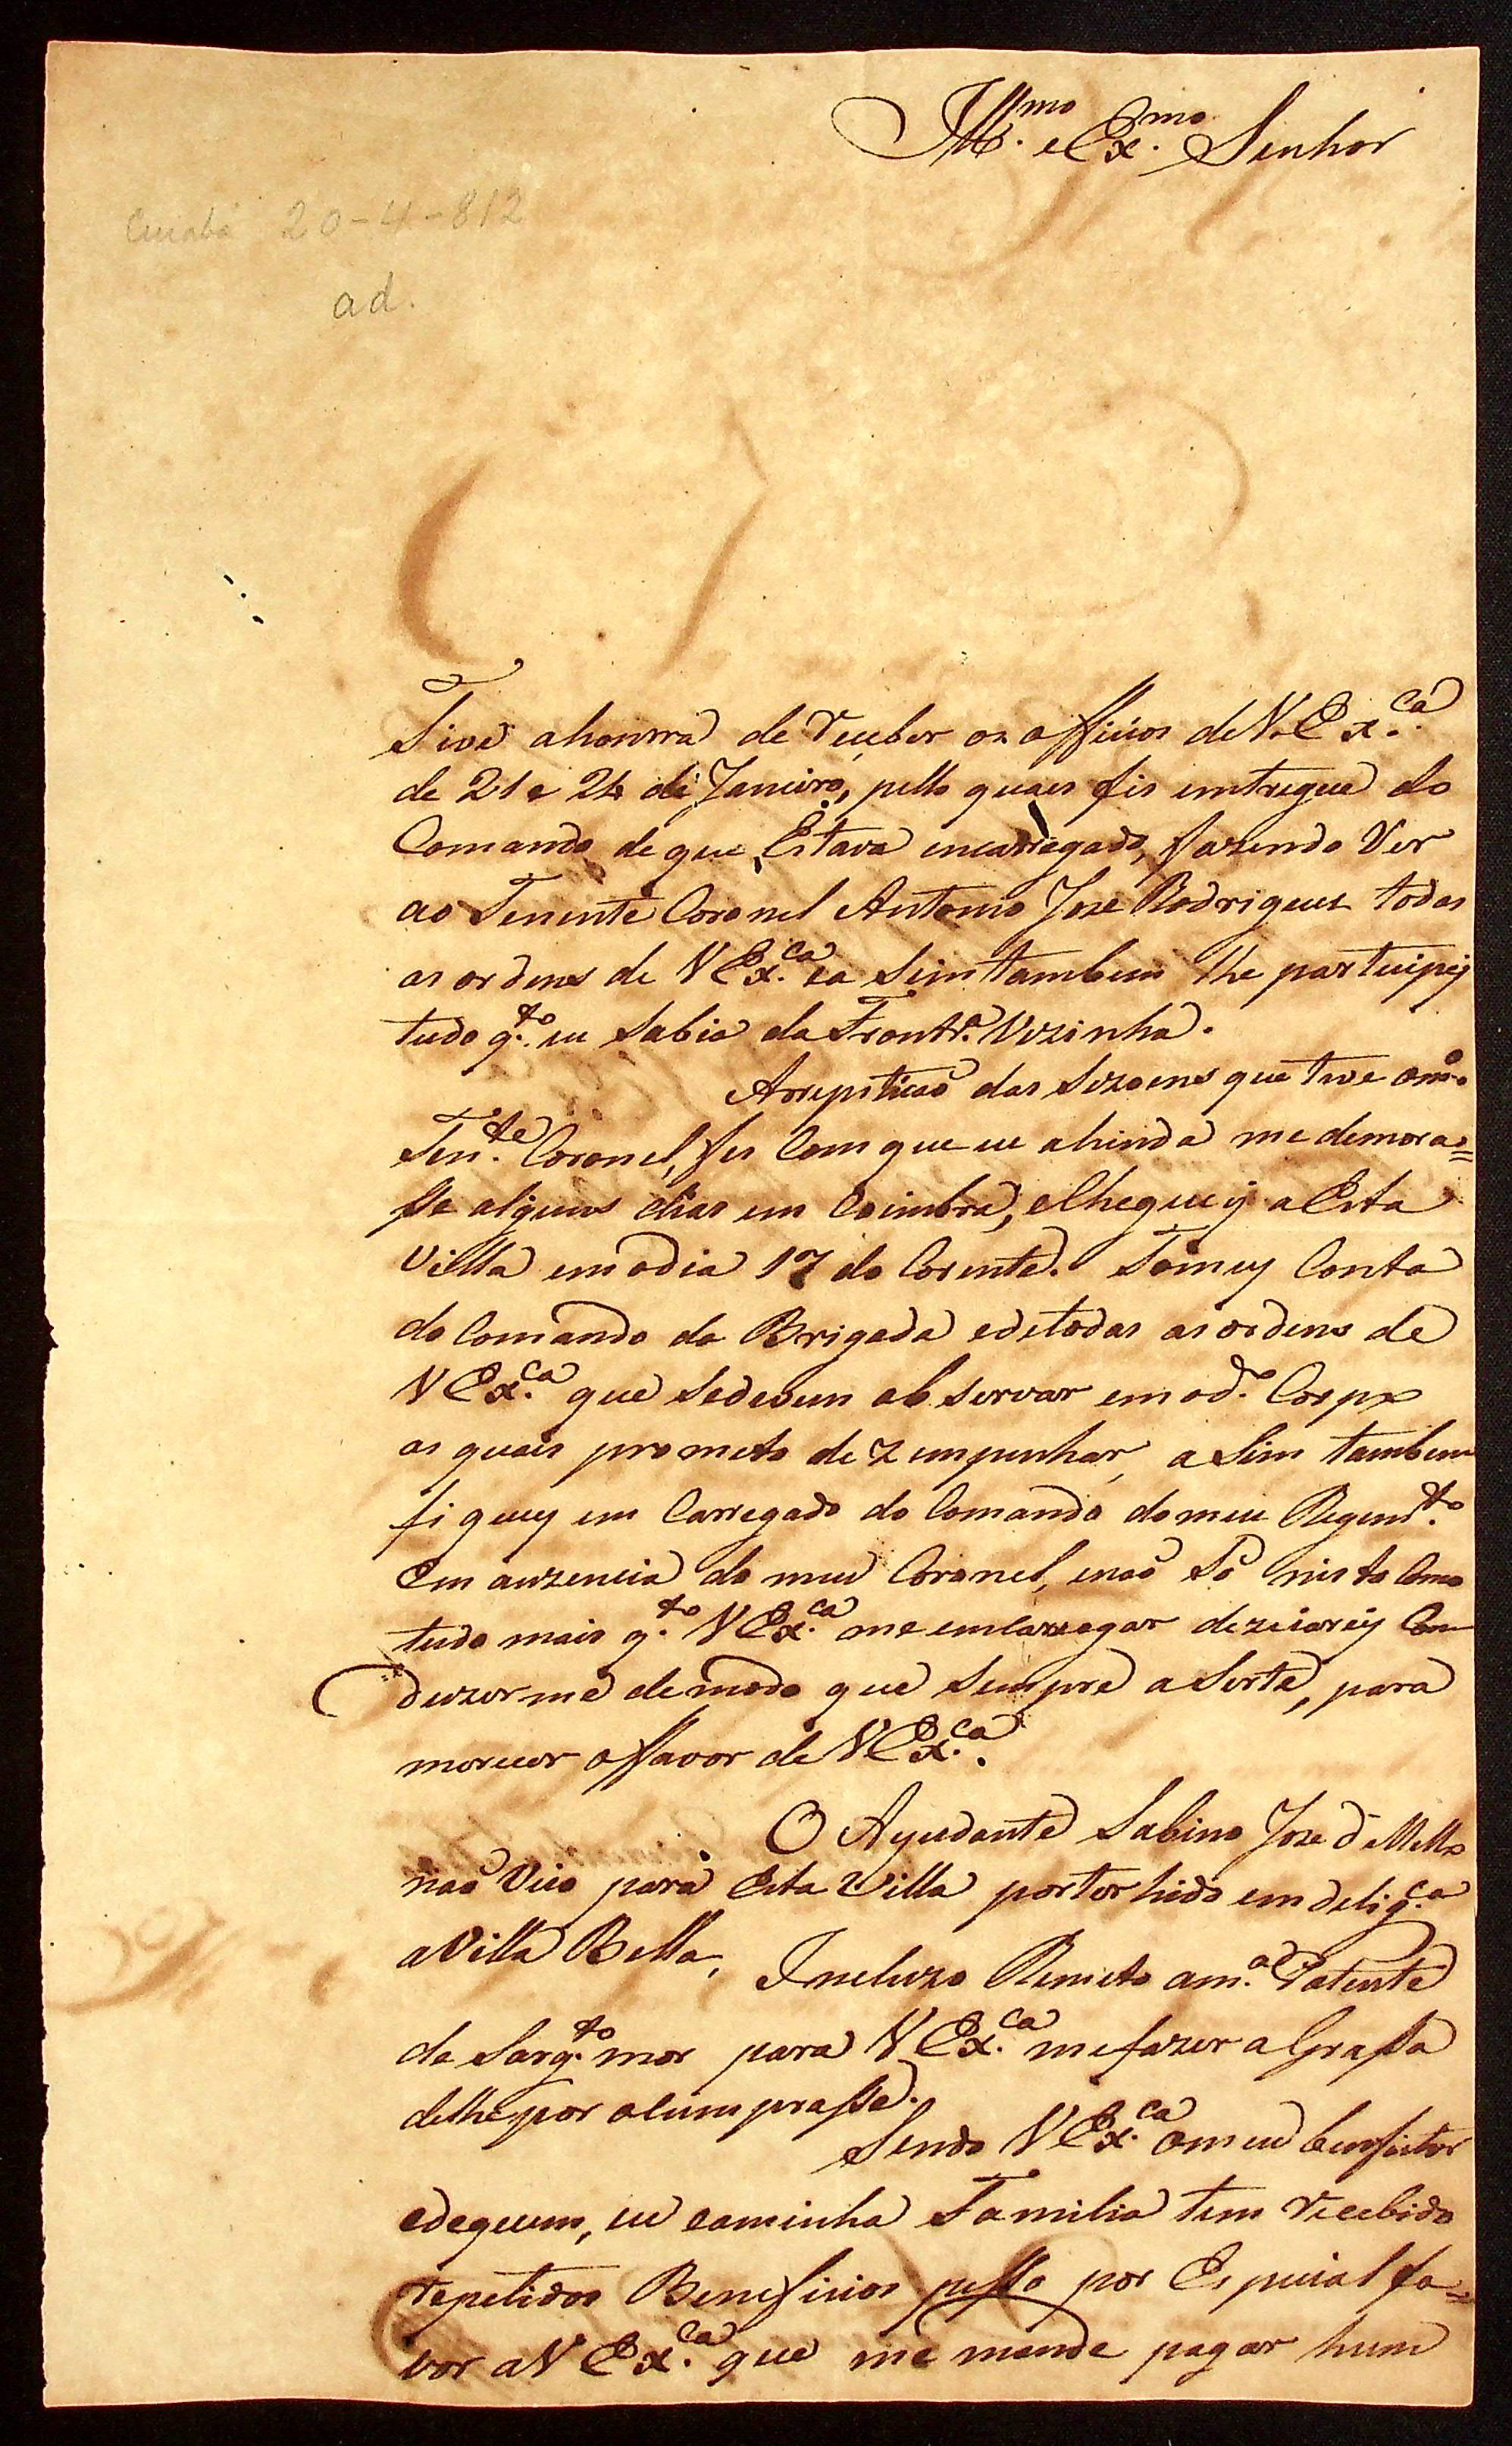 Ill.mo e Ex.mo Senhor
Cuiabá 20-4-812
ad.
Tive ahonrra de receber os officios de V. Ex.ca
de 21 e 24 de Janeiro, pello quaes fis emtregue do
Comando de que Estava encarregado, fazendo Ver
ao Tenente Coronel Antonio Joze Rodrigues todas
as ordens de V Ex.ca ea Sim tambem lhe participey
tudo q.to eu Sabia da Front.ra Vizinha.
Arepiticaõ das Sezoens que teve om.o
Ten.te Coronel, fes Com que eu ahinda me demora=
sse alguns dias em Coimbra, eCheguey a Esta
Villa em odia 17 do Corente. Tomey Conta
do Comando da Brigada edetodas as ordens de
V Ex.ca que Sedevem observar em od.o Corpo
as quais prometo dezempenhar, a Sim tambem
fiquey em Carregado do Comando domeu Regim.to
Em auzencia do meu Coronel, enaõ Só nisto Como
tudo mais q.to V Ex.ca me emcarregar dezeiarey Con
duzirme demodo que Sempre a Serte, para
merecer offavor de V Ex.ca.
O Ayudante Sabino Joze d Mello
naõ Veio para Esta Villa porter hido em delig.ca
a Villa Bella, Incluzo Remeto am.a Patente
de Sarg.to mor para V Ex.ca mefazer a Grassa
delhe por ocumprasse.
Sendo V Ex.ca omeu benfeitor
edequem, eu eaminha Familia tem recebido
repetidos Beneficios pesso por Especial fa=
vor aV Ex.ca que me mande pagar hum